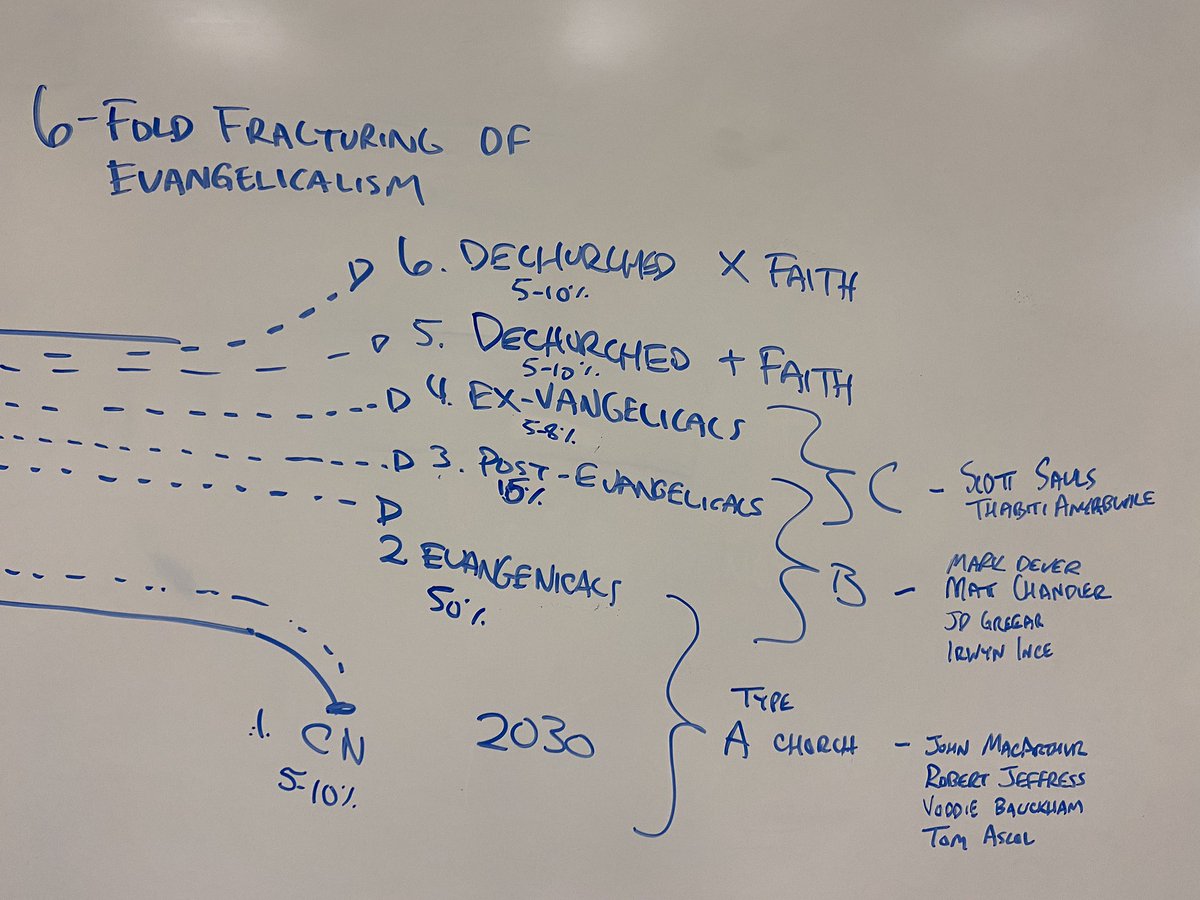 6-FOLD FRACTURING OF
EVANGELICALISM
6. DECHURCHED X FAITH
5-10%
5. DECHURCHED + FAITH
5-10%
4. EX-VANGELICALS
5-8%
3. POST-EVANGELICALS
15%
2 EVANGENICALS
50%
1. CN
5-10%
2030
C - SCOTT SAULS
THABITI
B - MARK DEVER
MATT CHANDLER
JD GREEAR
IRWYN INCE
TYPE
A CHURCH - JOHN MACARTHUR
ROBERT JEFFRESS
VODDIE BAUCKHAM
TOM ASCOL